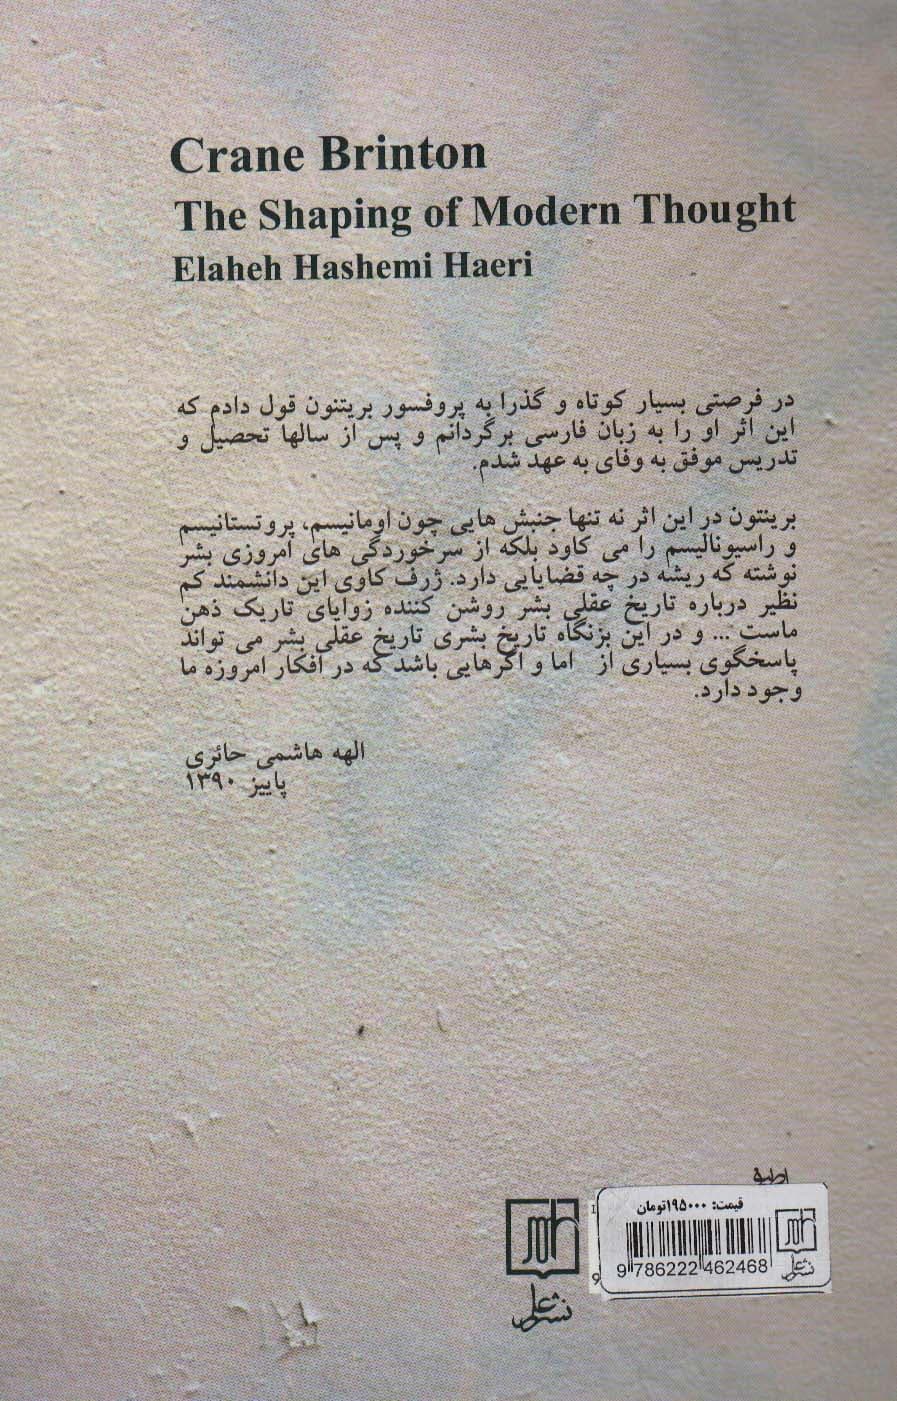 Crane Brinton
The Shaping of Modern Thought
Elaheh Hashemi Haeri
در فرصتی بسیار کوتاه و گذرا به پروفسور بریتنون قول دادم که
این اثر او را به زبان فارسی برگردانم و پس از سالها تحصیل و
تدریس موفق به وفای به عهد شدم.
برینتون در این اثر نه تنها جنبش هایی چون اومانیسم، پروتستانیسم
و راسیونالیسم را می کاود بلکه از سرخوردگی های امروزی بشر
نوشته که ریشه در چه قضایایی دارد. ژرف کاوی این دانشمند کم
نظیر درباره تاریخ عقلی بشر روشن کننده زوایای تاریک ذهن
ماست ... و در این بزنگاه تاریخ بشری تاریخ عقلی بشر می تواند
پاسخگوی بسیاری از اما و اگرهایی باشد که در افکار امروزه ما
وجود دارد.
الهه هاشمی حائری
پاییز ۱۳۹۰
قیمت: ۱۹۵۰۰۰تومان
9 786222 462468
نشر علم
نشر علم